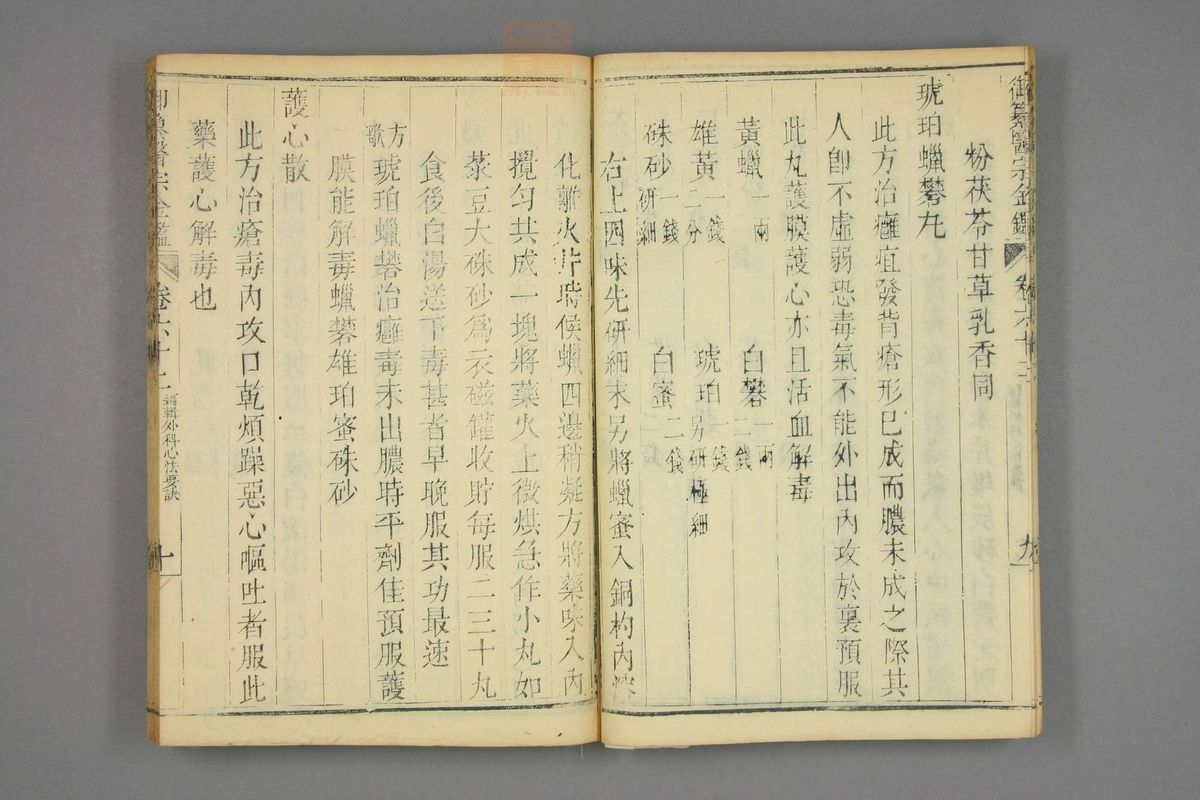 御纂醫宗金鑑 卷六十二 九
粉茯苓甘草乳香同
琥珀蠟礬丸
此方治癰疽發背瘡形已成而膿未成之際其
人卽不虛弱恐毒氣不能外出內攻於裏預服
此丸護膜護心亦且活血解毒
黃蠟一兩 白礬一兩二錢
雄黃一錢二分 琥珀一錢另研極細
硃砂一錢研細 白蜜二錢
右上四味先研細末另將蠟蜜入銅杓內
化離火片時候蠟四邊稍凝方將藥味入內
攪勻共成一塊將藥火上微烘急作小丸如
菉豆大硃砂爲衣磁罐收貯每服二三十丸
食後白湯送下毒甚者早晚服其功最速
方歌 琥珀蠟礬治癰毒未出膿時平劑佳預服護
膜能解毒蠟礬雄珀蜜硃砂
護心散
此方治瘡毒內攻口乾煩躁惡心嘔吐者服此
藥護心解毒也
御纂醫宗金鑑 卷六十二 編輯外科心法要訣 十